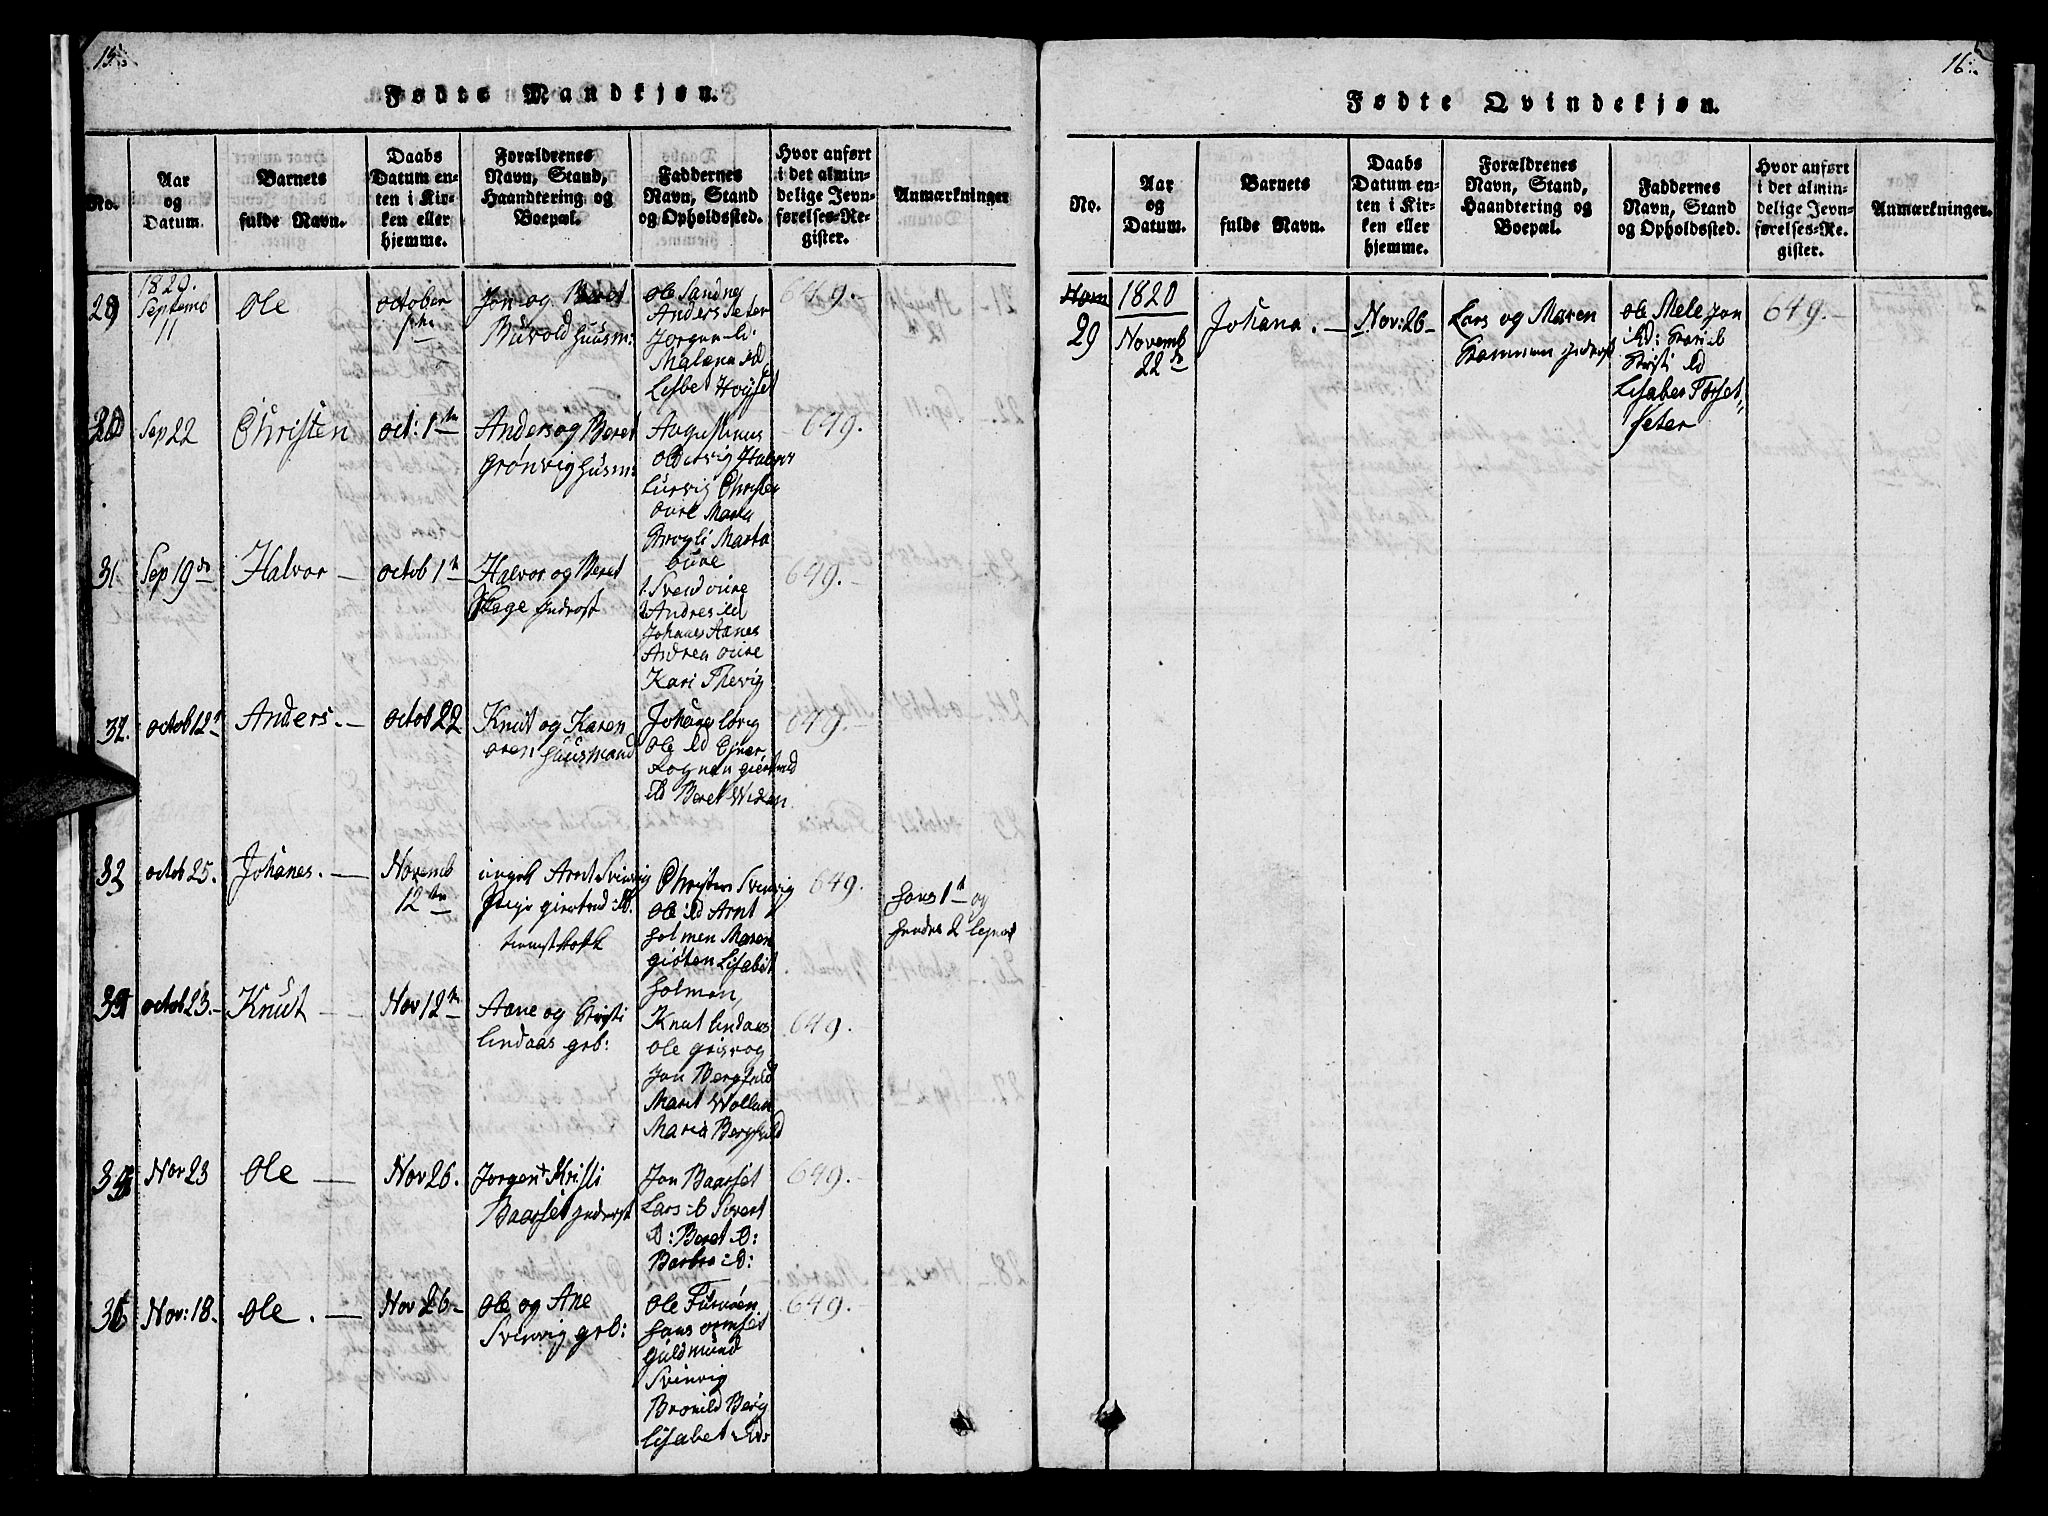 15.
Fødte Mandkjøn.
No.
Aar
og
Datum.
Barnets
fulde Navn.
Daabs
Datum en-
ten i Kir-
ken eller
hjemme.
Forældrenes
Navn, Stand,
Haandtering og
Boepæl.
Faddernes
Navn, Stand
og Opholdssted.
Hvor anført
i det almin-
delige Jevn-
førelses-Re-
gister.
Anmærkninger
29
1820.
Septemb
11
Ole
october
1ste
Jon og Beret
Buvold huusm:
Ole Sandnes
Anders Seter
Jorgen
Malena
Lisbet Hoyset
649.-
30
Sep 22
Christen
oct: 1te
Anders og Beret
Grönvig husm:
Augustinus
Halvor
Lurvig Christen
oure Marta
Brogli Marta
oure
649.
31
Sep 19de
Halvor -
octob 1te
Halvor og Beret
Hage Inderst
1 Svend oure
2 Andres ibd
Johanes Aanes
Andrea oure
Kari Thevig
649.-
32.
octob 12t
Anders. -
octob 22
Knut og Karen
oren huusmand
Johana lörvig
Ole ibd Ejner
Rognan giertrud
ibd Beret Widan
649.-
33
octob 25.
Johanes. -
Novemb
12te
ungk Arnt Svinvig
Pige giertrud ibd:
Christen Svinvig
Ole ibd Arnt
holmen Maren
giöten Lisabet
holmen
649.
hans 1t og
hendes 2 lejer
34
octob 23.-
Knut -
Nov 12te
Aane og Kristi
lindaas grb:
Knut lindaas
Ole
Jon Bergfald
Marit Wollan
Maria Bergfald
649.
35
Nov 23
Ole -
Nov 26.
Jorgen + Kristi
Baarset inderst
Jon Baarset
Lars ib Sivert
ibd: Beret ib:
Barbra ib:
649.-
36
Nov: 18.
Ole. -
Nov 26-
Ole og Ane
Svinvig grb:
Ole Furuöen
hans ormset
Guldmund
Svinvig
Bronild Berg
Lisabet ibd:
649.
16.
Fødte Qvindekjøn.
No.
Aar
og
Datum.
Barnets
fulde Navn.
Daabs
Datum en-
ten i Kir-
ken eller
hjemme.
Forældrenes
Navn, Stand,
Haandtering og
Boepæl.
Faddernes
Navn, Stand
og Opholdssted.
Hvor anført
i det almin-
delige Jevn-
førelses-Re-
gister.
Anmærkninger.
29
1820
Novemb
22de
Johana. -
Nov: 26-
Lars og Maren
inderst
Ole Mele Jon
ibd:
Kristi ibd
Lisabet Torset-
seter
649.-